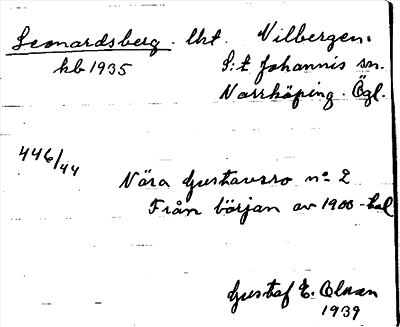 Leonardsberg. lht. Vilbergen.
hb 1935 S:t Johannis sn.
Norrköping. Ögl.
446/44
Nära Gustavsro no 2
Från början av 1900-tal
Gustaf E. Olsson
1939